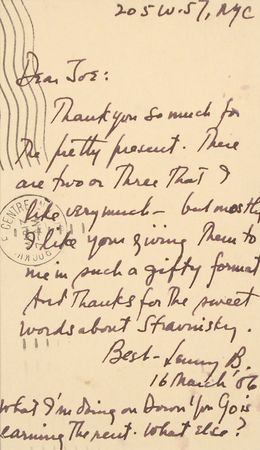 205 W. 57, NYC
Dear Joe:
Thank you so much for
the pretty present. There
are two or three that I
like very much — but mostly
I like your giving them to
me in such a gifty format
And thanks for the sweet
words about Stravinsky.
Best - Lenny B.
16 March '56
What I'm doing on Down You Go is
earning the rent. What else?
CENTRE